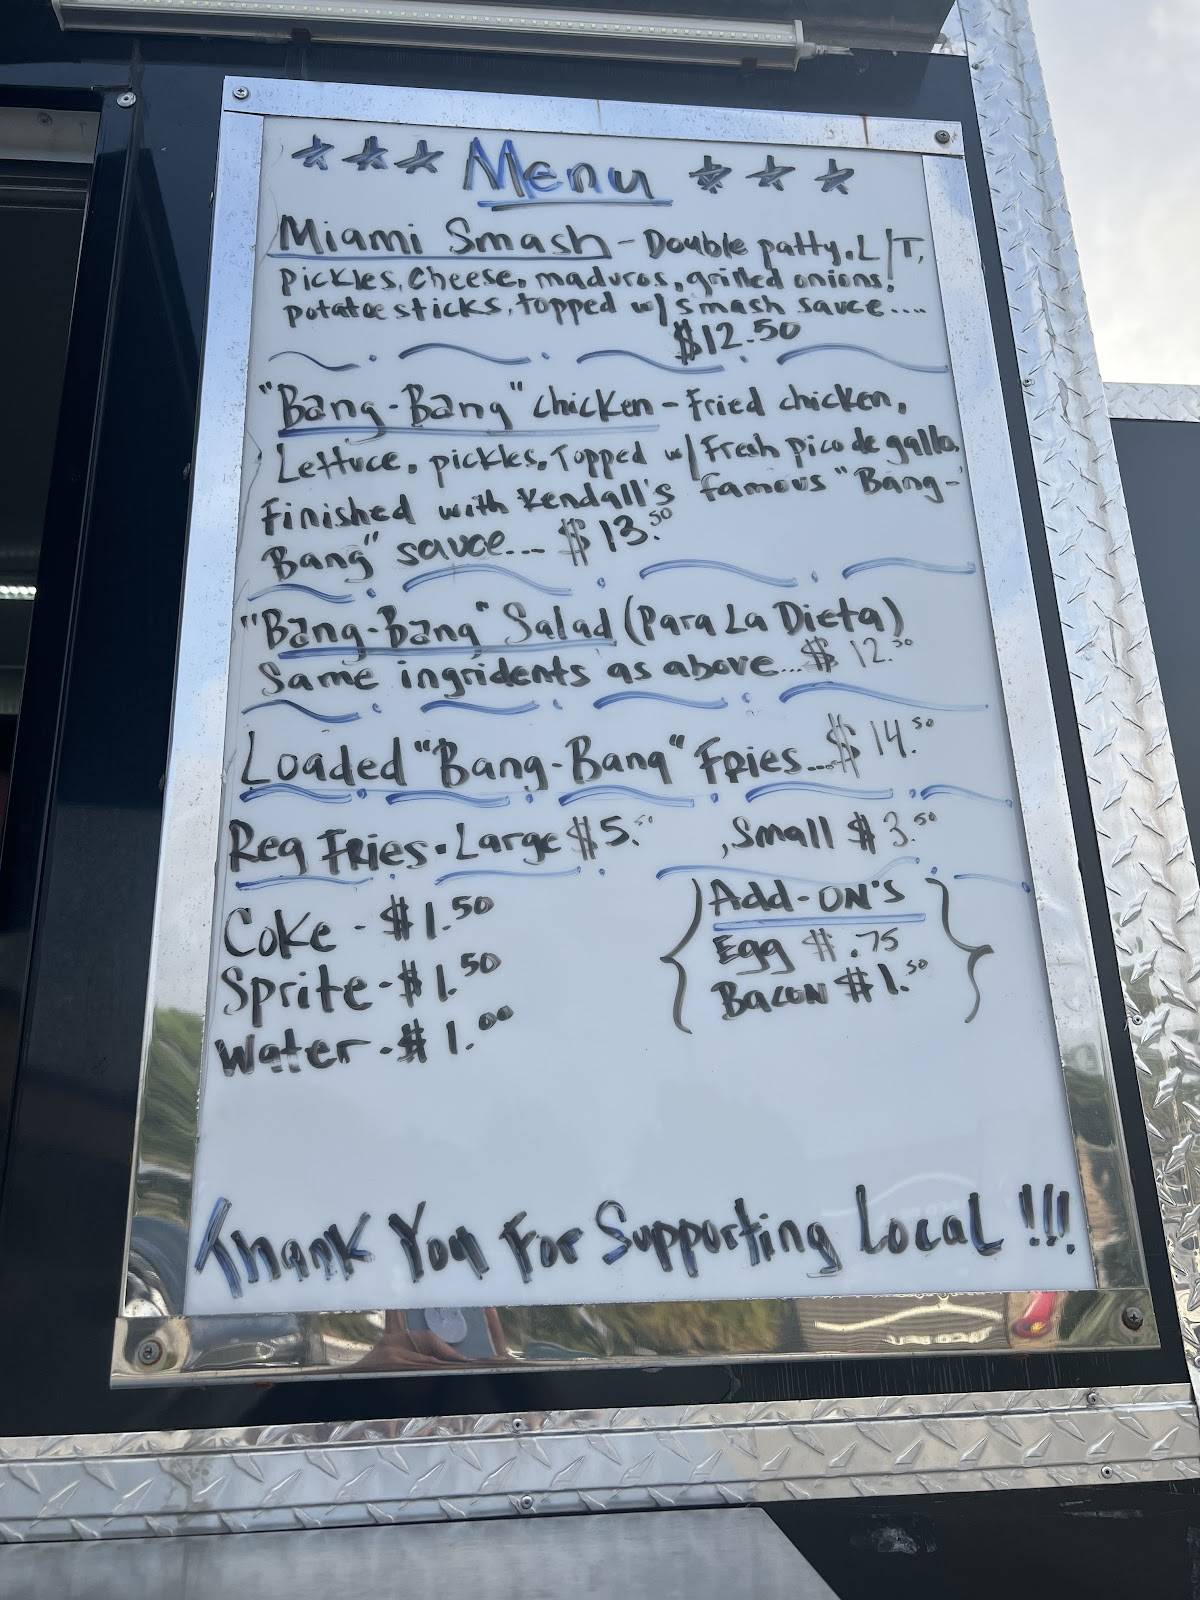 *** Menu ***
Miami Smash - Double patty, L/T,
pickles, cheese, maduros, grilled onions,
potatoe sticks, topped w/ smash sauce....
$12.50
"Bang-Bang" chicken - Fried chicken,
Lettuce, pickles, Topped w/ Fresh pico de gallo,
Finished with Kendall's famous "Bang-
Bang" sauce... $13.50
"Bang-Bang" Salad (Para La Dieta)
Same ingridents as above... $12.50
Loaded "Bang-Bang" Fries... $14.50
Reg Fries - Large $5. , Small $3.50
Coke - $1.50
Sprite - $1.50
Water - $1.00
Add-ON's
Egg $.75
Bacon $1.50
Thank You For Supporting Local !!!